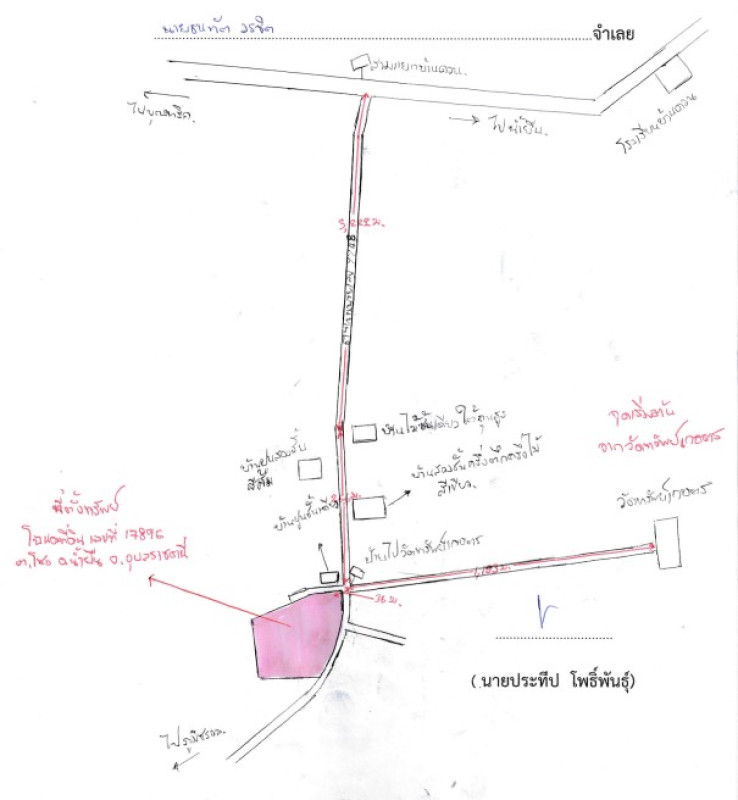 นายธนทัต วรชิต จำเลย
สามแยกบ้านตวน
ไปบุณฑริก
ไปน้ำยืน
โรงเรียนบ้านตวน
ทางหลวงหมายเลข 2248
จุดเริ่มต้น
จากวัดทรัพย์เกษตร
บ้านปูนสองชั้น
สีส้ม
บ้านสองชั้นครึ่งตึกครึ่งไม้
สีเขียว
บ้านปูนชั้นเดียว
วัดทรัพย์เกษตร
ที่ตั้งทรัพย์
โฉนดที่ดิน เลขที่ 17896
ต.โซง อ.น้ำยืน จ.อุบลราชธานี
ป้ายไปวัดทรัพย์เกษตร
36 ม.
(นายประทีป โพธิ์พันธุ์)